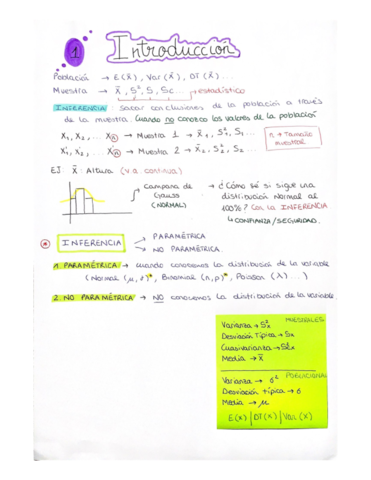 1 Introducción
Población → E(X̄), Var(X̄), DT(X̄)...
Muestra → X̄, S², S, Sc... → estadístico
INFERENCIA: Sacar conclusiones de la población a través
de la muestra. Cuando no conozco los valores de la población
X₁, X₂, ... Xₙ → Muestra 1 → X̄₁, S²₁, S₁...
X'₁, X'₂, ... X'ₙ → Muestra 2 → X̄₂, S²₂, S₂...
n → Tamaño
muestral
EJ. X̄: Altura (v.a. continua)
campana de
Gauss
(NORMAL)
→ ¿Cómo sé si sigue una
distribución Normal al
100%? Con la INFERENCIA
↳ CONFIANZA/SEGURIDAD.
* INFERENCIA
→ PARAMÉTRICA
→ NO PARAMÉTRICA.
1 PARAMÉTRICA → cuando conocemos la distribución de la variable
Binomial (n,p)*, Poisson (λ)...)
2 NO PARAMÉTRICA → NO conocemos la distribución de la variable.
MUESTRALES
Varianza → S²x
Desviación Típica → Sx
Cuasivarianza →
Media → X̄
POBLACIONAL
Varianza → σ²
Desviación típica → σ
Media → μ
E(X) | DT(X) | Var(X)